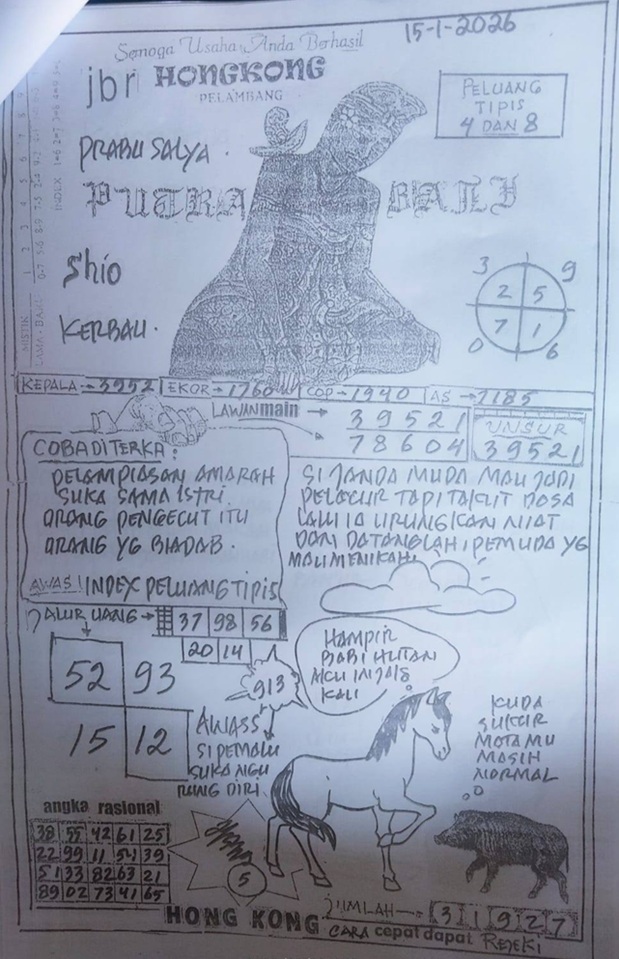 15-1-2026
Semoga Usaha Anda Berhasil
jbr HONGKONG
PELAMBANG
PELUANG
TIPIS
4 DAN 8
PRABU SALYA.
PUTRA BALI
Shio
KERBAU.
3 9
2 5
7 1
0 6
KEPALA → 3952 EKOR → 1760 COP → 1940 AS → 7185
LAWAN main → 3 9 5 2 1
7 8 6 0 4
UNSUR
39521
COBA DITERKA:
PELAMPIASAN AMARAH
SUKA SAMA ISTRI.
ORANG PENGECUT ITU
ORANG YG BIADAB.
AWAS! INDEX PELUANG TIPIS
SI JANDA MUDA MAU JADI
PELACUR TAPI TAKUT DOSA
LALU IA URUNGKAN NIAT
DAN DATANGLAH, PEMUDA YG
MAU MENIKAHI
JALUR UANG → 37 98 56
20 14
52 93
15 12
913
HAMPIR
BABI HUTAN
AKU INJAK
KALI
AWASS
SI PEMALU
SUKA NGU
RUNG DIRI.
KUDA
SUKUR
MATAMU
MASIH
NORMAL
angka rasional
38 55 42 61 25
22 99 11 54 39
51 33 82 63 21
89 02 73 41 65
5
JUMLAH → 3 1 9 2 7
HONG KONG CARA cepat dapat REJEKI